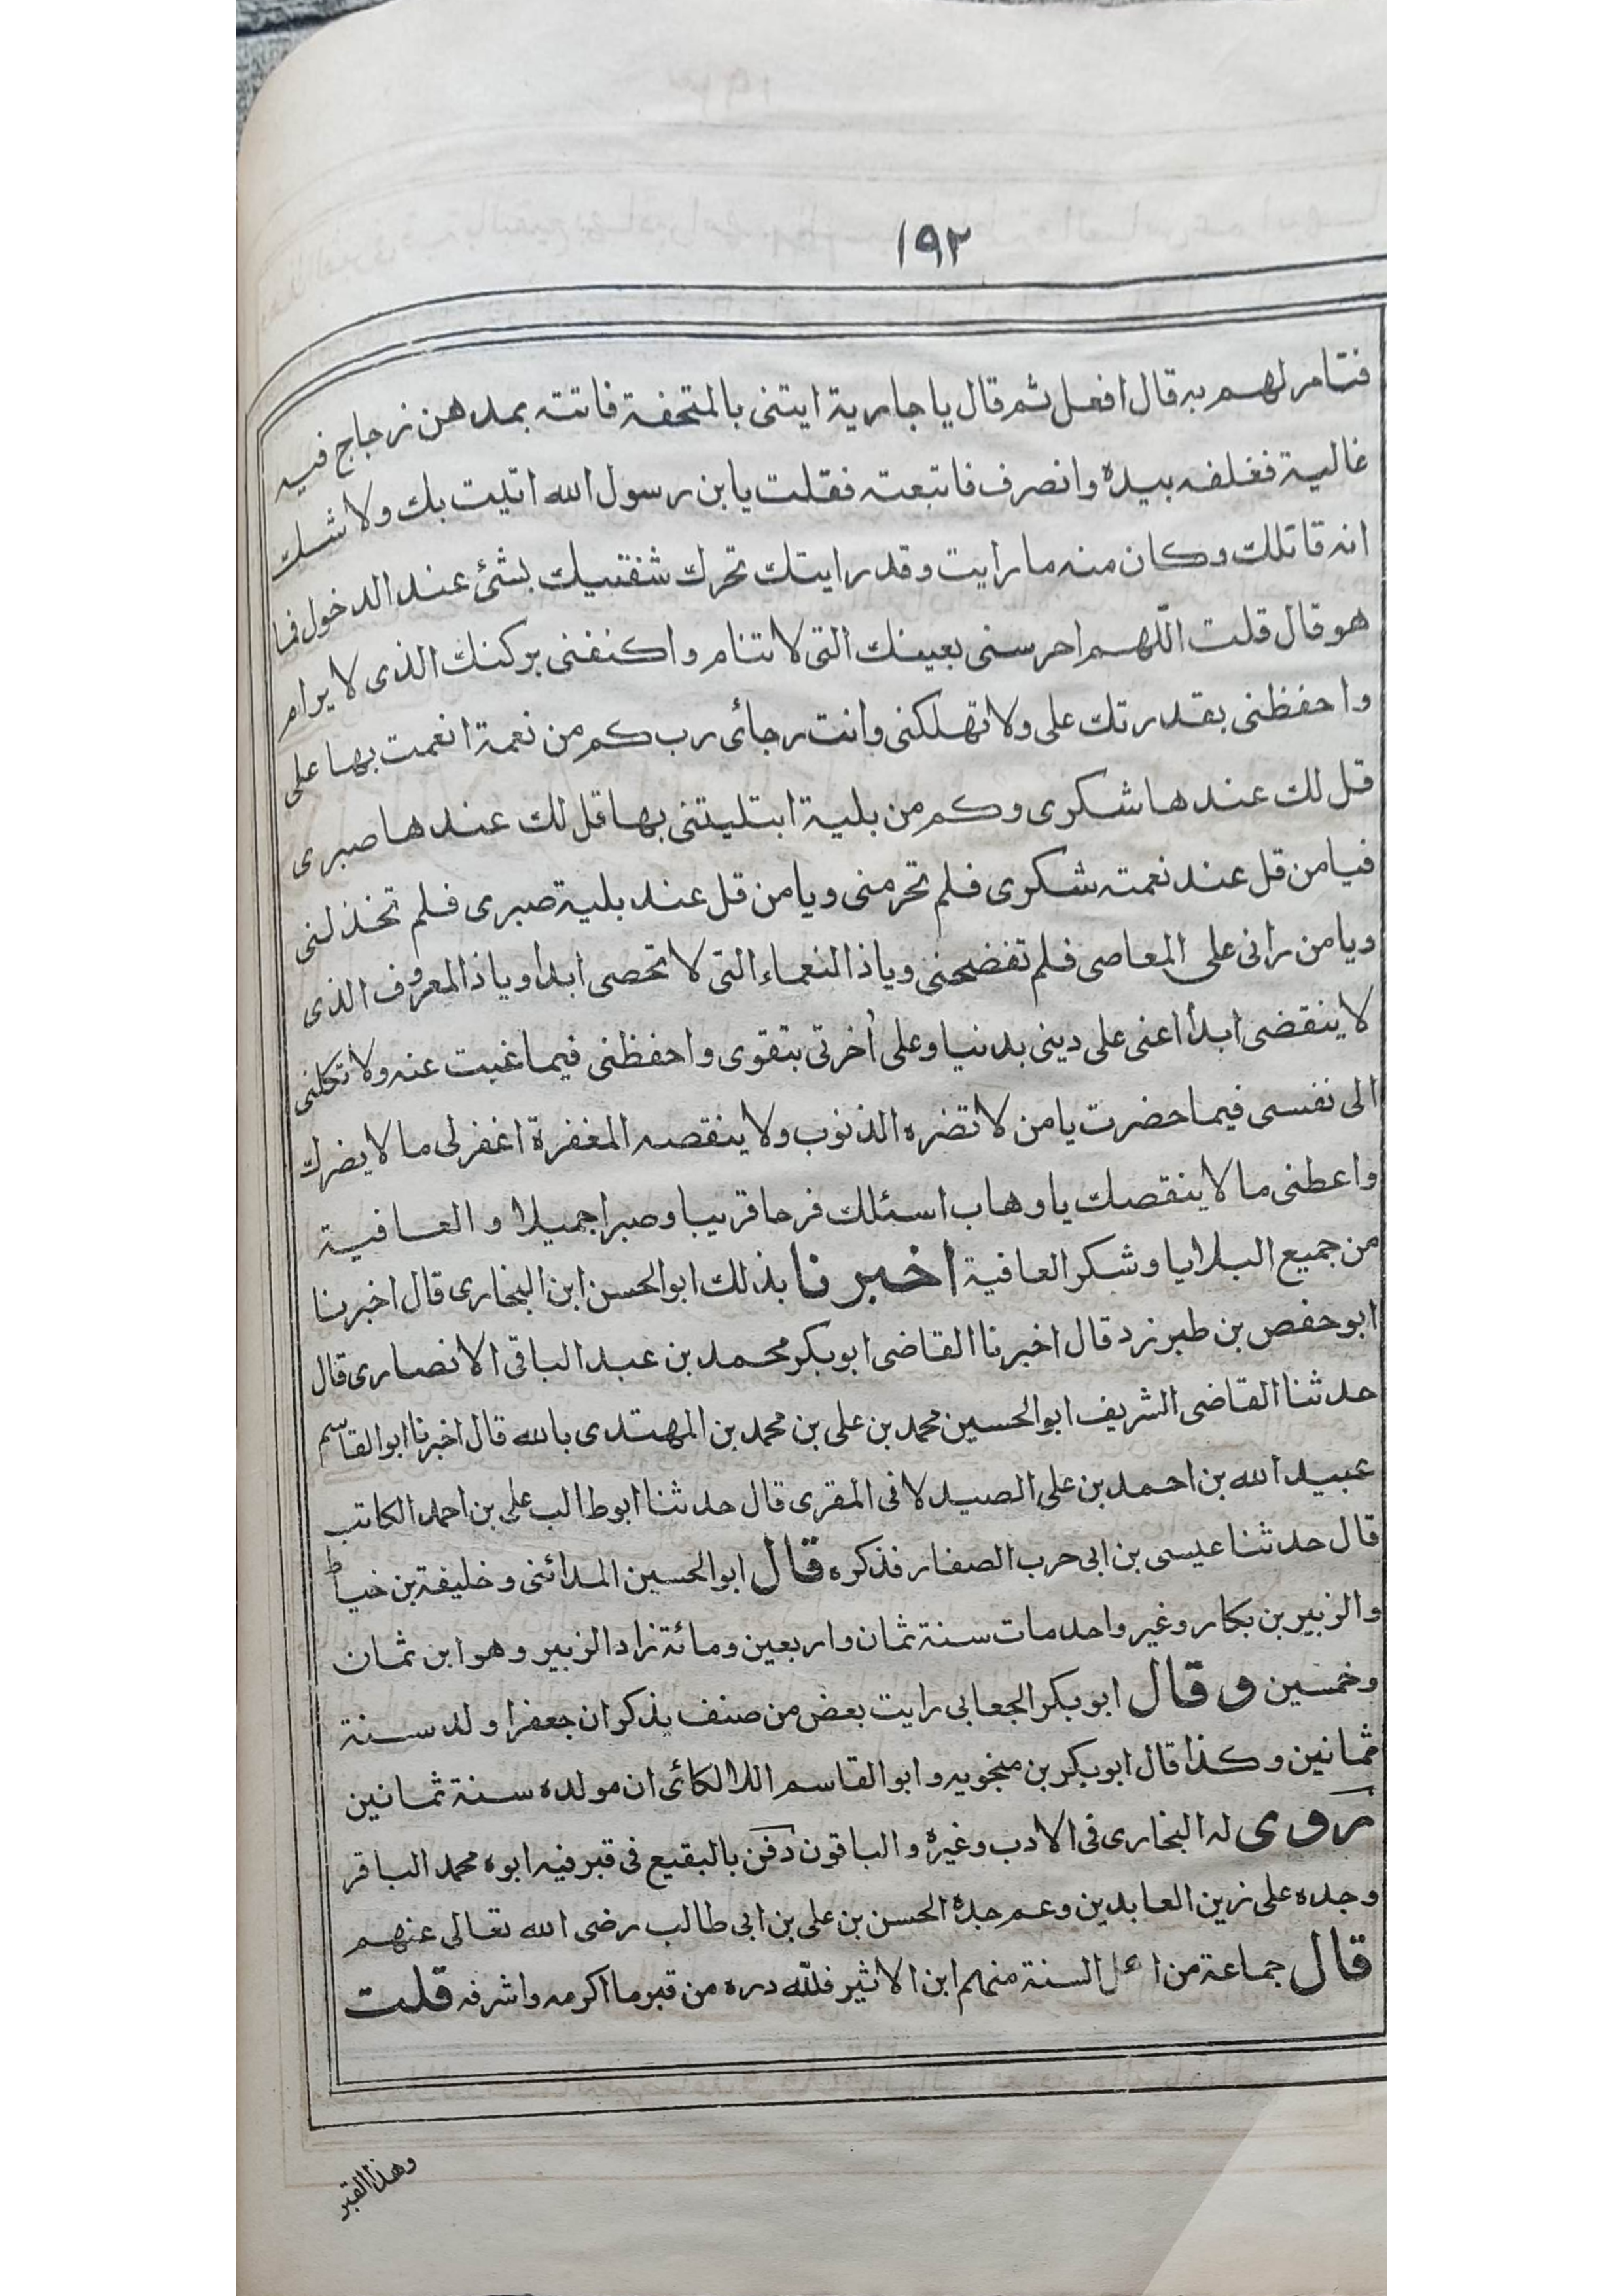 ١٩٢
فتامر لهم به قال افعل ثم قال يا جارية ايتنى بالمتحفة فاتته بمدهن زجاج فيه
غالية فغلفه بيده وانصرف فاتبعته فقلت يابن رسول الله اتيت بك ولا شك
انه قاتلك وكان منه ما رايت وقد رايتك تحرك شفتيك بشئ عند الدخول فما
هو قال قلت اللّهم احرسنى بعينك التى لا تنام واكنفنى بركنك الذى لا يرام
واحفظنى بقدرتك على ولا تهلكنى وانت رجائى رب كم من نعمة انعمت بها على
قل لك عندها شكرى وكم من بلية ابتليتنى بها قل لك عندها صبرى
فيا من قل عند نعمته شكرى فلم تحرمنى ويا من قل عند بلية صبرى فلم تخذلنى
ويا من رانى على المعاصى فلم تفضحنى ويا ذا النعماء التى لا تحصى ابدا ويا ذا المعروف الذى
لا ينقضى ابدا اعنى على دينى بدنيا وعلى أخرتى بتقوى واحفظنى فيما غبت عنه ولا تكلنى
الى نفسى فيما حضرت يا من لا تضره الذنوب ولا ينقصه المغفرة اغفر لى ما لا يضرك
واعطنى ما لا ينقصك يا وهاب اسئلك فرحا قريبا وصبرا جميلا و العافية
من جميع البلايا وشكر العافية اخبرنا بذلك ابو الحسن ابن البخارى قال اخبرنا
ابو حفص بن طبرزد قال اخبرنا القاضى ابو بكر محمد بن عبد الباقى الانصارى قال
حدثنا القاضى الشريف ابو الحسين محمد بن على بن محمد بن المهتدى بالله قال اخبرنا ابو القاسم
عبيد الله بن احمد بن على الصيدلانى المقرى قال حدثنا ابو طالب على بن احمد الكاتب
قال حدثنا عيسى بن ابى حرب الصفار فذكره قال ابو الحسين المدائنى وخليفة بن خياط
والزبير بن بكار وغير واحد مات سنة ثمان واربعين ومائة زاد الزبير وهو ابن ثمان
وخمسين وقال ابو بكر الجعابى رايت بعض من صنف يذكر ان جعفرا ولد سنة
ثمانين وكذا قال ابو بكر بن منجويه وابو القاسم اللالكائى ان مولده سنة ثمانين
روى له البخارى فى الادب وغيره و الباقون دفن بالبقيع فى قبر فيه ابوه محمد الباقر
وجده على زين العابدين وعم جده الحسن بن على بن ابى طالب رضى الله تعالى عنهم
قال جماعة من اهل السنة منهم ابن الاثير فللّه دره من قبر ما اكرمه واشرفه قلت
وهذا القبر